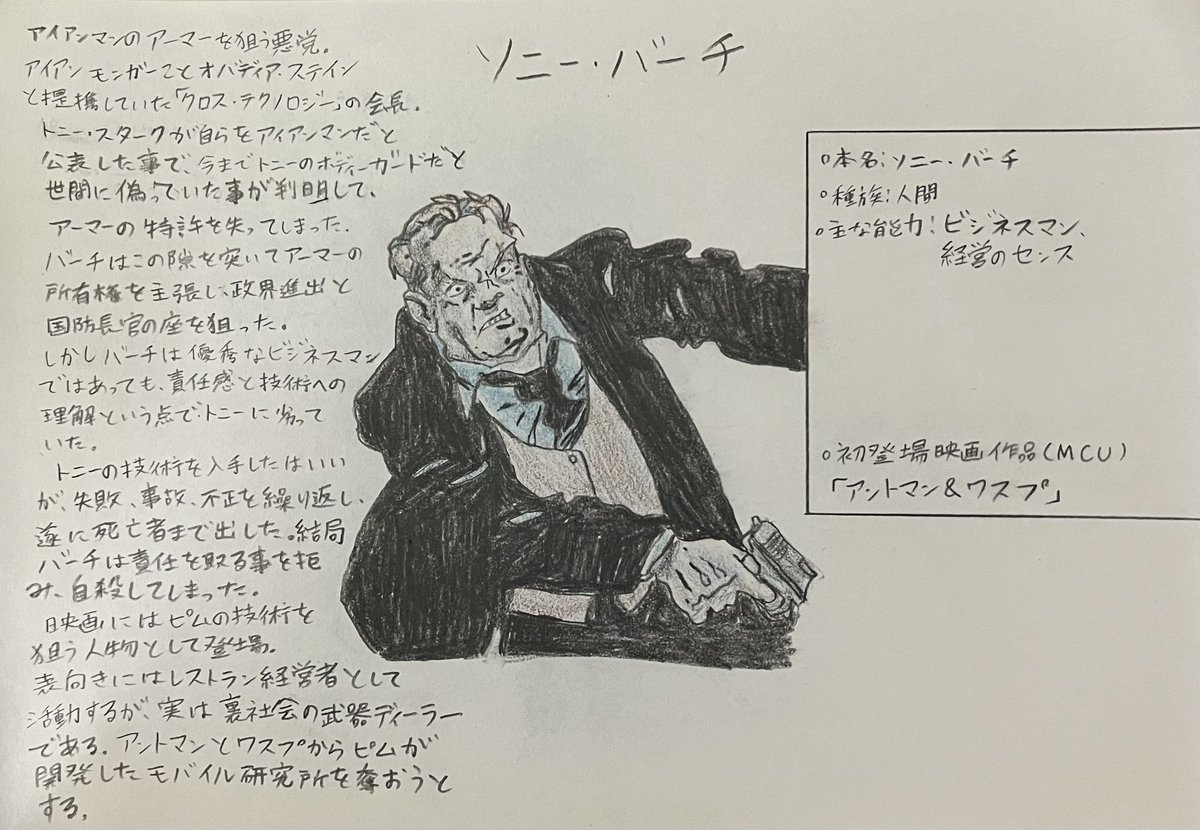 ソニー・バーチ
アイアンマンのアーマーを狙う悪党。
アイアンモンガーことオバディア・ステイン
と提携していた「クロス・テクノロジー」の会長。
トニー・スタークが自らをアイアンマンだと
公表した事で、今までトニーのボディーガードだと
世間に偽っていた事が判明して、
アーマーの特許を失ってしまった。
バーチはこの隙を突いてアーマーの
所有権を主張し、政界進出と
国防長官の座を狙った。
しかしバーチは優秀なビジネスマン
ではあっても、責任感と技術への
理解という点で、トニーに劣って
いた。
トニーの技術を入手したはいい
が、失敗、事故、不正を繰り返し、
遂に死亡者まで出した。結局
バーチは責任を取る事を拒
み、自殺してしまった。
映画にはピムの技術を
狙う人物として登場。
表向きにはレストラン経営者として
活動するが、実は裏社会の武器ディーラー
である。アントマンとワスプからピムが
開発したモバイル研究所を奪おうと
する。
○本名:ソニー・バーチ
○種族:人間
○主な能力:ビジネスマン、
経営のセンス
○初登場映画作品(MCU)
「アントマン&ワスプ」